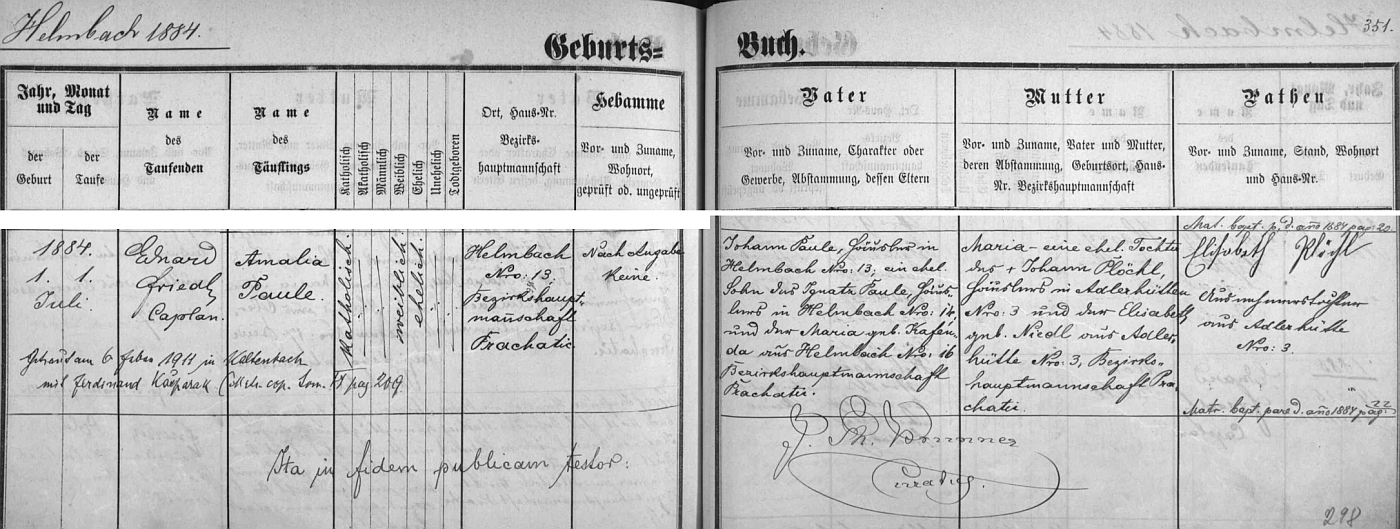 Helmbach 1884.
351.
Geburts=
Buch.
Jahr, Monat
und Tag
der
Geburt
der
Taufe
Name
des
Taufenden
Name
des
Täuflings
Katholisch
Akatholisch
Männlich
Weiblich
Ehelich
Unehelich
Todtgeboren
Ort, Haus-Nr.
Bezirks-
hauptmannschaft
Hebamme
Vor- und Zuname,
Wohnort,
geprüft od. ungeprüft
Vater
Vor- und Zuname, Charakter oder
Gewerbe, Abstammung, dessen Eltern
Mutter
Vor- und Zuname, Vater und Mutter,
deren Abstammung, Geburtsort, Haus-
Nr. Bezirkshauptmannschaft
Pathen
Vor- und Zuname, Stand, Wohnort
und Haus-Nr.
1884.
1. 1.
Juli
Eduard
Friedl
Caplan.
Amalia
Paule.
Katholisch.
weiblich
ehelich.
Helmbach
Nro: 13,
Bezirkshaupt,
mannschaft
Prachatic
Nach Angabe
keine.
Johann Paule, Häusler in
Helmbach Nro: 13; ein ehel.
Sohn des Ignatz Paule, Häus-
lers in Helmbach Nro: 14,
und der Maria geb. Kafen-
da aus Helmbach Nro: 16
Bezirkshauptmannschaft
Prachatic.
Maria – eine ehel. Tochter
des + Johann Plöchl,
Häuslers in Adlerhütten
Nro: 3 und der Elisabeth
geb. Niedl aus Adler-
hütte Nro: 3, Bezirks-
hauptmannschaft Pra-
chatic.
Mat. bapt. p. d. año 1884 pag. 20
Elisabeth Plöchl
Ausnehmerstochter
aus Adlerhütte
Nro: 3.
Getraut am 6 Feber 1911 in Kaltenbach
mit Ferdinand Kašparak
pag. 209
Matr. bapt. par. d. año 1884 pag: 22
Ita in fidem publicam testor:
Brunner
Curatus.
298